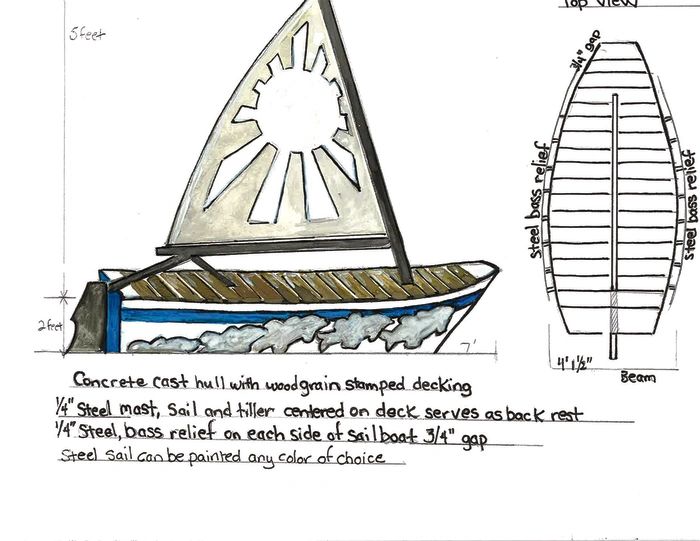 Top View
5 feet
3/4" gap
steel bass relief
steel bass relief
2 feet
7'
4' 1 1/2"
Beam
Concrete cast hull with woodgrain stamped decking
1/4" Steel mast, sail and tiller centered on deck serves as back rest
1/4" Steel, bass relief on each side of sailboat 3/4" gap
Steel sail can be painted any color of choice